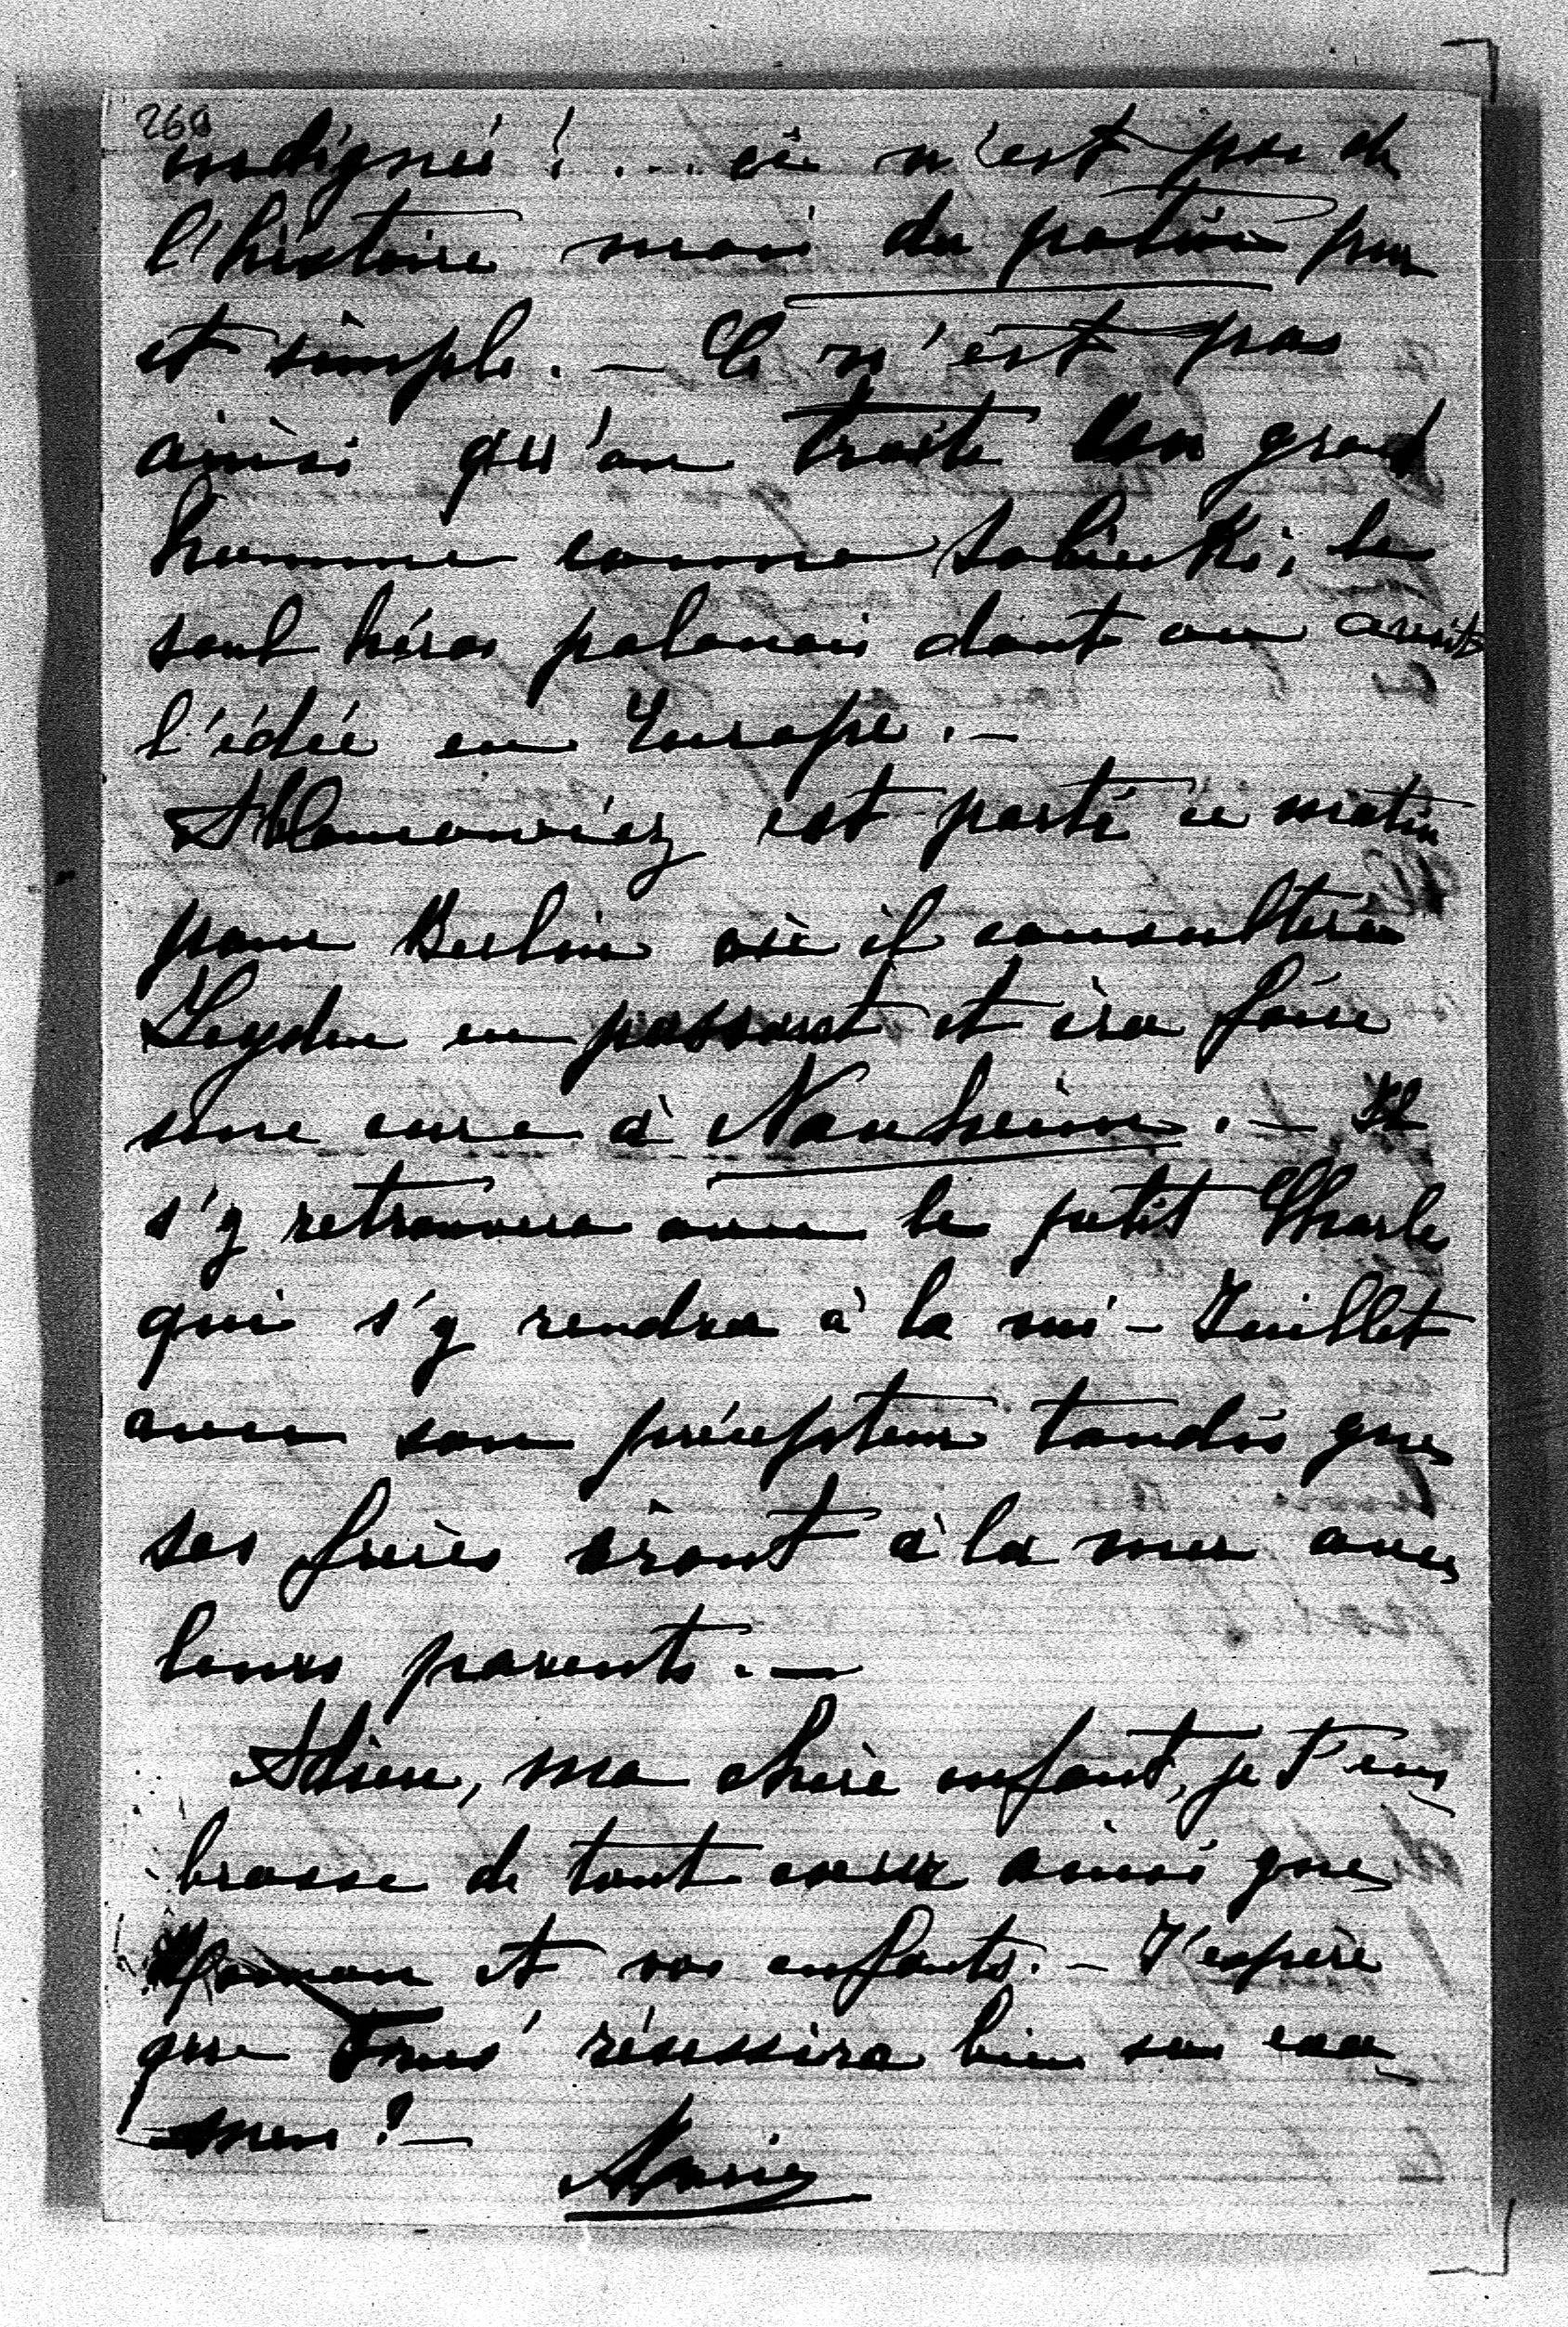 260
indigné!... ce n'est pas de
l'histoire mais du potin pur
et simple. – Ce n'est pas
ainsi qu'on traite un grand
homme comme Sobieski; le
seul héros polonais dont on avait
l'idée en Europe. –
est parti ce matin
pour Berlin où il consultera
Leyden en passant et ira faire
une cure à Nauheim. – Il
s'y retrouvera avec le petit Charles
qui s'y rendra à la mi-Juillet
avec son précepteur tandis que
ses frères iront à la mer avec
leurs parents. –
Adieu, ma chère enfant, je t'em-
brasse de tout coeur ainsi que
Roman et vos enfants. – J'espère
que réussira bien son exa-
men! –
Marie